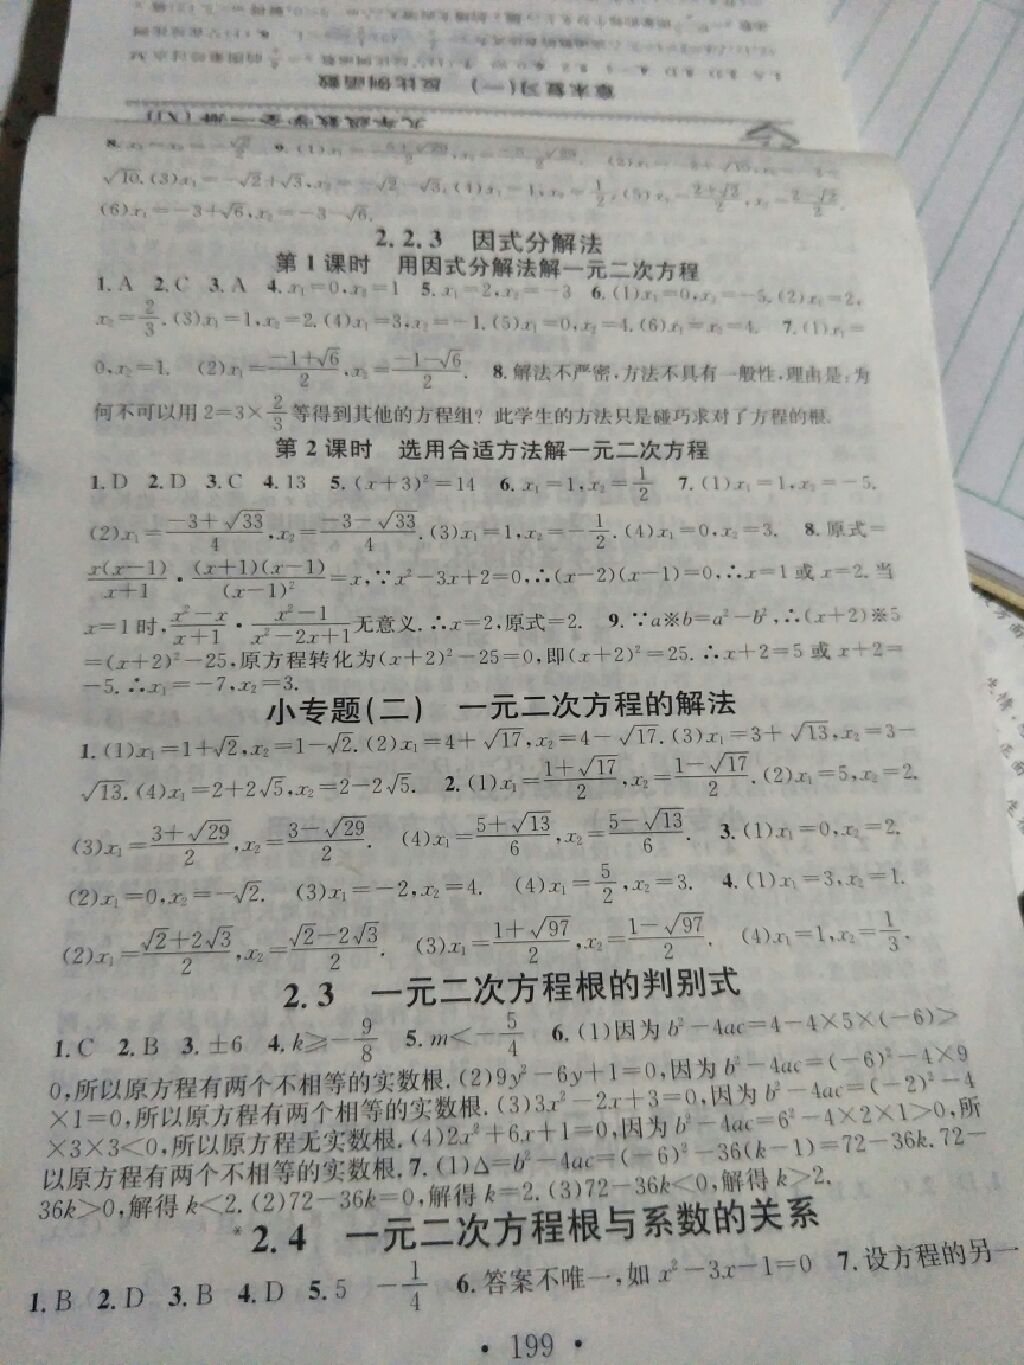 九年级数学全一册(XJ)
章末复习(一) 反比例函数
√10.(3)x₁=-√2+√3,x₂=-√2-√3.(4)x₁=1,x₂=1/2.(5)x₁=(2+√2)/2,x₂=(2-√2)/2.
(6)x₁=-3+√6,x₂=-3-√6.
2.2.3 因式分解法
第1课时 用因式分解法解一元二次方程
1.A 2.C 3.A 4.x₁=0,x₂=1 5.x₁=2,x₂=-3 6.(1)x₁=0,x₂=-5.(2)x₁=2,
x₂=2/3.(3)x₁=1,x₂=2.(4)x₁=3,x₂=-1.(5)x₁=0,x₂=4.(6)x₁=x₂=4. 7.(1)x₁=
0,x₂=1. (2)x₁=(-1+√6)/2,x₂=(-1-√6)/2. 8.解法不严密,方法不具有一般性,理由是:为
何不可以用2=3×2/3等得到其他的方程组?此学生的方法只是碰巧求对了方程的根.
第2课时 选用合适方法解一元二次方程
1.D 2.D 3.C 4.13 5.(x+3)²=14 6.x₁=1,x₂=1/2 7.(1)x₁=1,x₂=-5.
(2)x₁=(-3+√33)/4,x₂=(-3-√33)/4.(3)x₁=1,x₂=-1/2.(4)x₁=0,x₂=3. 8.原式=
x(x-1)/(x+1)·(x+1)(x-1)/(x-1)²=x,∵x²-3x+2=0,∴(x-2)(x-1)=0,∴x=1或x=2.当
x=1时,(x²-x)/(x+1)·(x²-1)/(x²-2x+1)无意义.∴x=2,原式=2. 9.∵a※b=a²-b²,∴(x+2)※5
=(x+2)²-25,原方程转化为(x+2)²-25=0,即(x+2)²=25.∴x+2=5或x+2=
-5.∴x₁=-7,x₂=3.
小专题(二) 一元二次方程的解法
1.(1)x₁=1+√2,x₂=1-√2.(2)x₁=4+√17,x₂=4-√17.(3)x₁=3+√13,x₂=3-
√13.(4)x₁=2+2√5,x₂=2-2√5. 2.(1)x₁=(1+√17)/2,x₂=(1-√17)/2.(2)x₁=5,x₂=2.
(3)x₁=(3+√29)/2,x₂=(3-√29)/2. (4)x₁=(5+√13)/6,x₂=(5-√13)/6. 3.(1)x₁=0,x₂=2.
(2)x₁=0,x₂=-√2. (3)x₁=-2,x₂=4. (4)x₁=5/2,x₂=3. 4.(1)x₁=3,x₂=1.
(2)x₁=(√2+2√3)/2,x₂=(√2-2√3)/2. (3)x₁=(1+√97)/2,x₂=(1-√97)/2. (4)x₁=1,x₂=1/3.
2.3 一元二次方程根的判别式
1.C 2.B 3.±6 4.k≥-9/8 5.m<-5/4 6.(1)因为b²-4ac=4-4×5×(-6)>
0,所以原方程有两个不相等的实数根.(2)9y²-6y+1=0,因为b²-4ac=(-6)²-4×9
×1=0,所以原方程有两个相等的实数根.(3)3x²-2x+3=0,因为b²-4ac=(-2)²-4
×3×3<0,所以原方程无实数根.(4)2x²+6x+1=0,因为b²-4ac=6²-4×2×1>0,所
以原方程有两个不相等的实数根.7.(1)Δ=b²-4ac=(-6)²-36(k-1)=72-36k.72-
36k>0,解得k<2.(2)72-36k=0,解得k=2.(3)72-36k<0,解得k>2.
*2.4 一元二次方程根与系数的关系
1.B 2.D 3.B 4.D 5.5 -1/4 6.答案不唯一,如x²-3x-1=0 7.设方程的另一
·199·